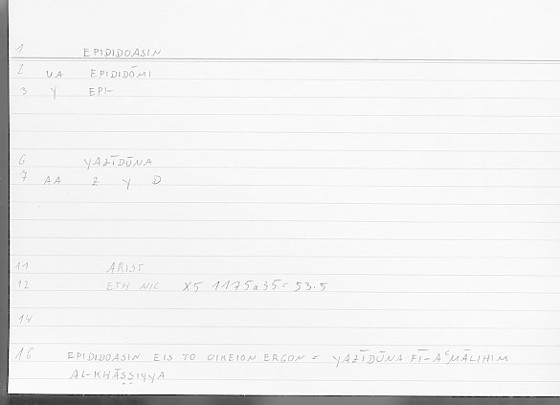 1 EPIDIDOASIN
2 VA EPIDIDŌMI
3 Y EPI-
6 YAZĪDŪNA
7 AA Z Y D
11 ARIST
12 ETH NIC X5 1175a35 = 53.5
14
16 EPIDIDOASIN EIS TO OIKEION ERGON = YAZĪDŪNA FĪ-AʿMĀLIHIM
AL-KHĀṢṢIYYA